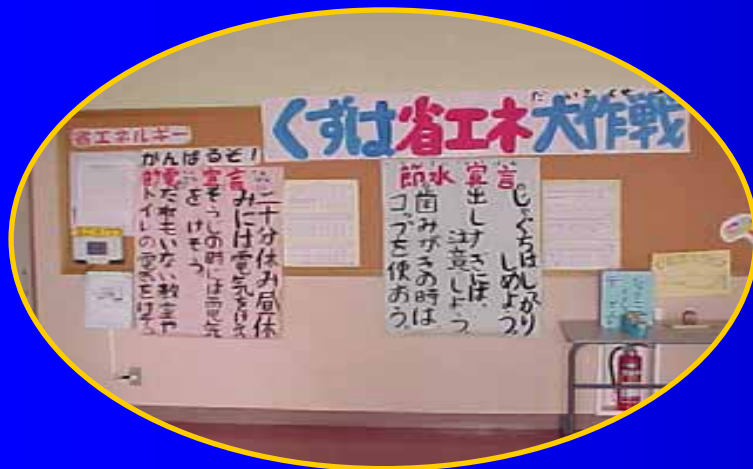 くずは省エネ大作戦
だいさくせん
省エネルギー
がんばるぞ!
節電宣言
二十分休み昼休
みには電気をけそう
そうじの時には電気
をけそう
だれもいない教室や
トイレの電気をけそう
節水宣言
じゃぐちはしっかり
しめよう。
出しすぎには、
注意しよう
歯みがきの時は
コップを使おう。